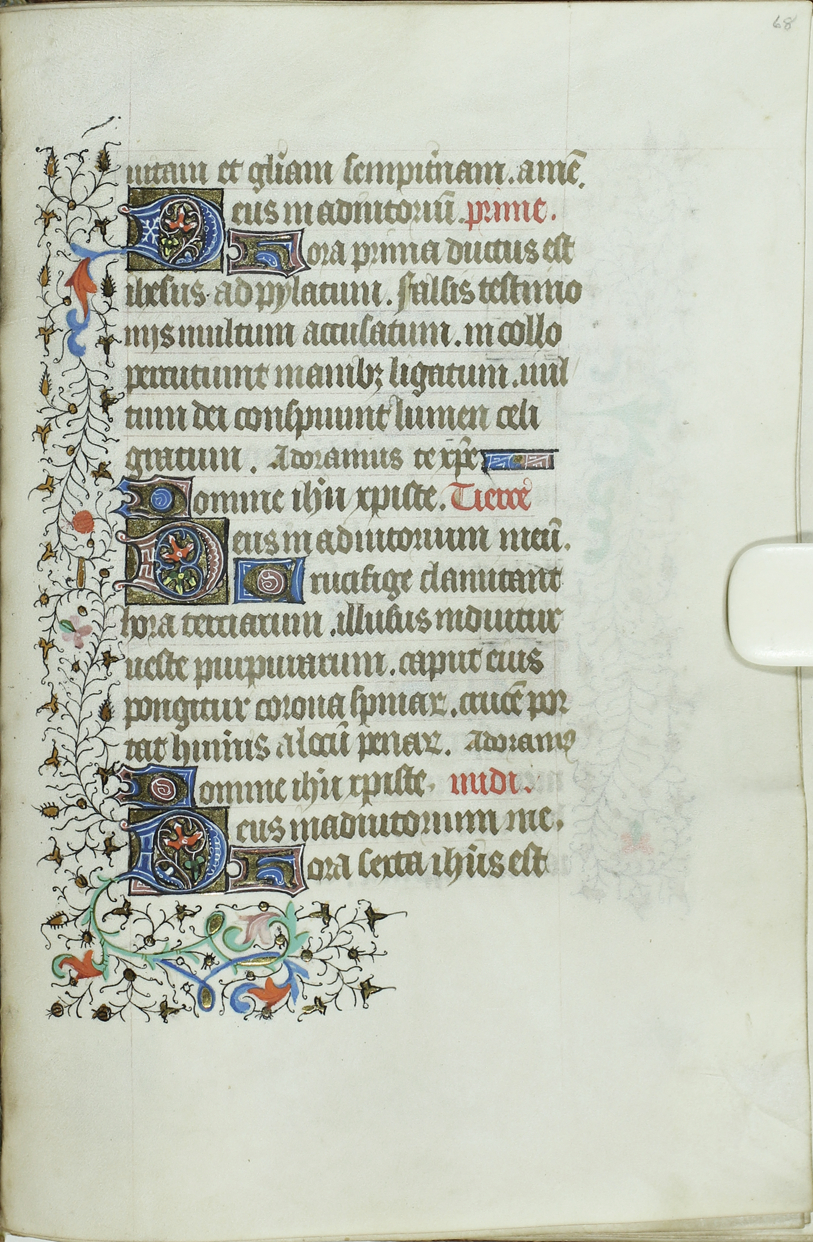 68
uitam et gl̄iam sempit̄nam. amē.
Deus in adiutoriū. prime.
Hora prima ductus est
ihesus ad pylatum. falsis testimo
nijs multum accusatum. in collo
percutiunt manibꝫ ligatum. uul
tum dei conspuunt lumen celi
gratum. Adoramus te xp̄e
Domine ih̄u xpiste. Tierce
Deus in adiutorium meū.
Crucifige clamitant
hora terciarum. illusus induitur
ueste purpurarum. caput eius
pungitur corona spinaꝝ. crucē por
tat humīs ad locū penaꝝ. Adoramꝰ
Domine ih̄u xpiste. midi.
Deus in adiutorium me.
Hora sexta ih̄us est